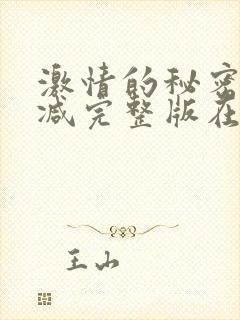 激情的秘密
减完整版在
王山